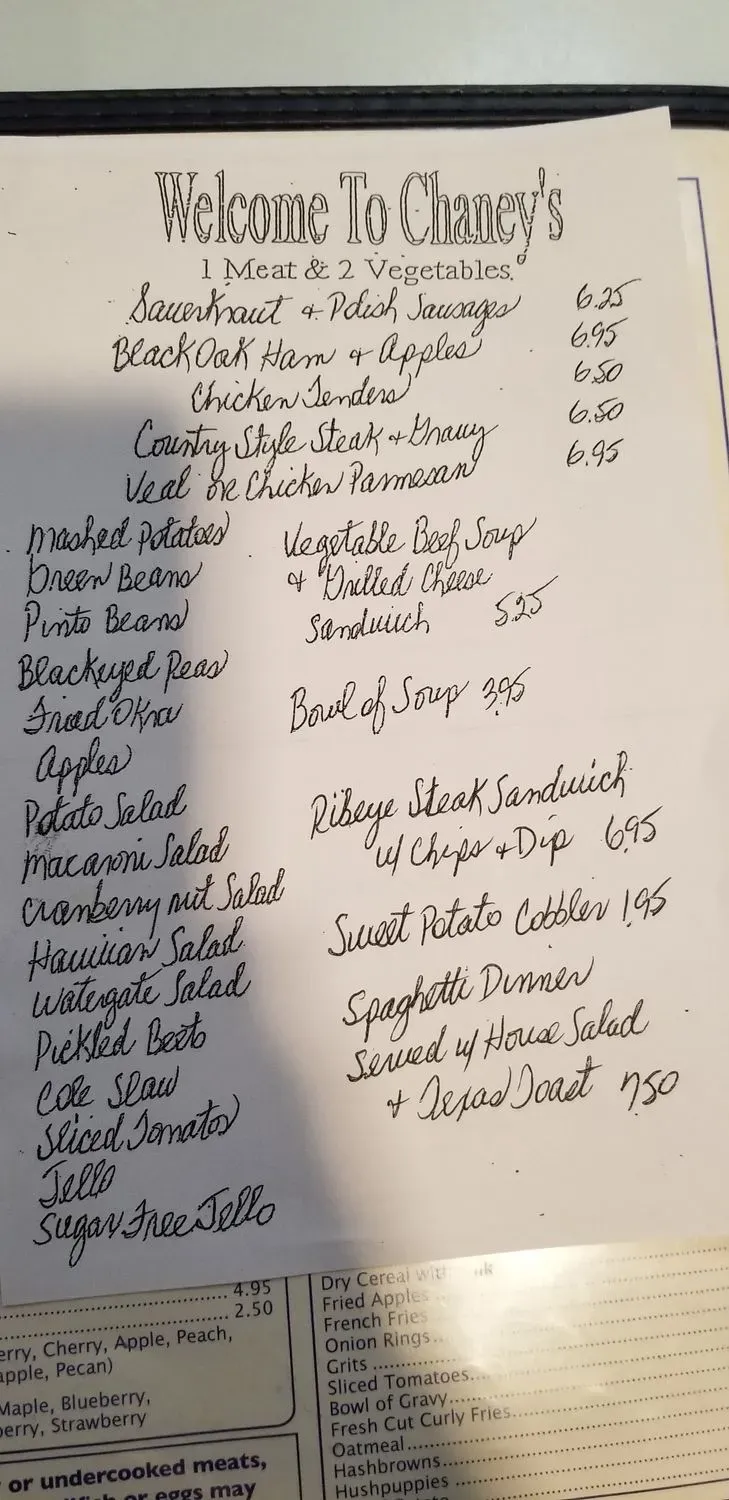 Welcome To Chaney's
1 Meat & 2 Vegetables.
Sauerkraut & Polish Sausages 6.25
Black Oak Ham & Apples 6.95
Chicken Tenders 6.50
Country Style Steak & Gravy 6.50
Veal or Chicken Parmesan 6.95
Mashed Potatoes
Green Beans
Pinto Beans
Blackeyed Peas
Fried Okra
Apples
Potato Salad
Macaroni Salad
Cranberry nut Salad
Hawiian Salad
Watergate Salad
Pickled Beets
Cole Slaw
Sliced Tomatos
Jello
Sugar Free Jello
Vegetable Beef Soup
& Grilled Cheese
Sandwich 5.25
Bowl of Soup 3.95
Ribeye Steak Sandwich
w/ Chips & Dip 6.95
Sweet Potato Cobbler 1.95
Spaghetti Dinner
Served w/ House Salad
& Texas Toast 7.50
4.95
2.50
erry, Cherry, Apple, Peach,
apple, Pecan)
Maple, Blueberry,
berry, Strawberry
or undercooked meats,
or eggs may
Dry Cereal with
Fried Apples
French Fries
Onion Rings
Grits
Sliced Tomatoes
Bowl of Gravy
Fresh Cut Curly Fries
Oatmeal
Hashbrowns
Hushpuppies